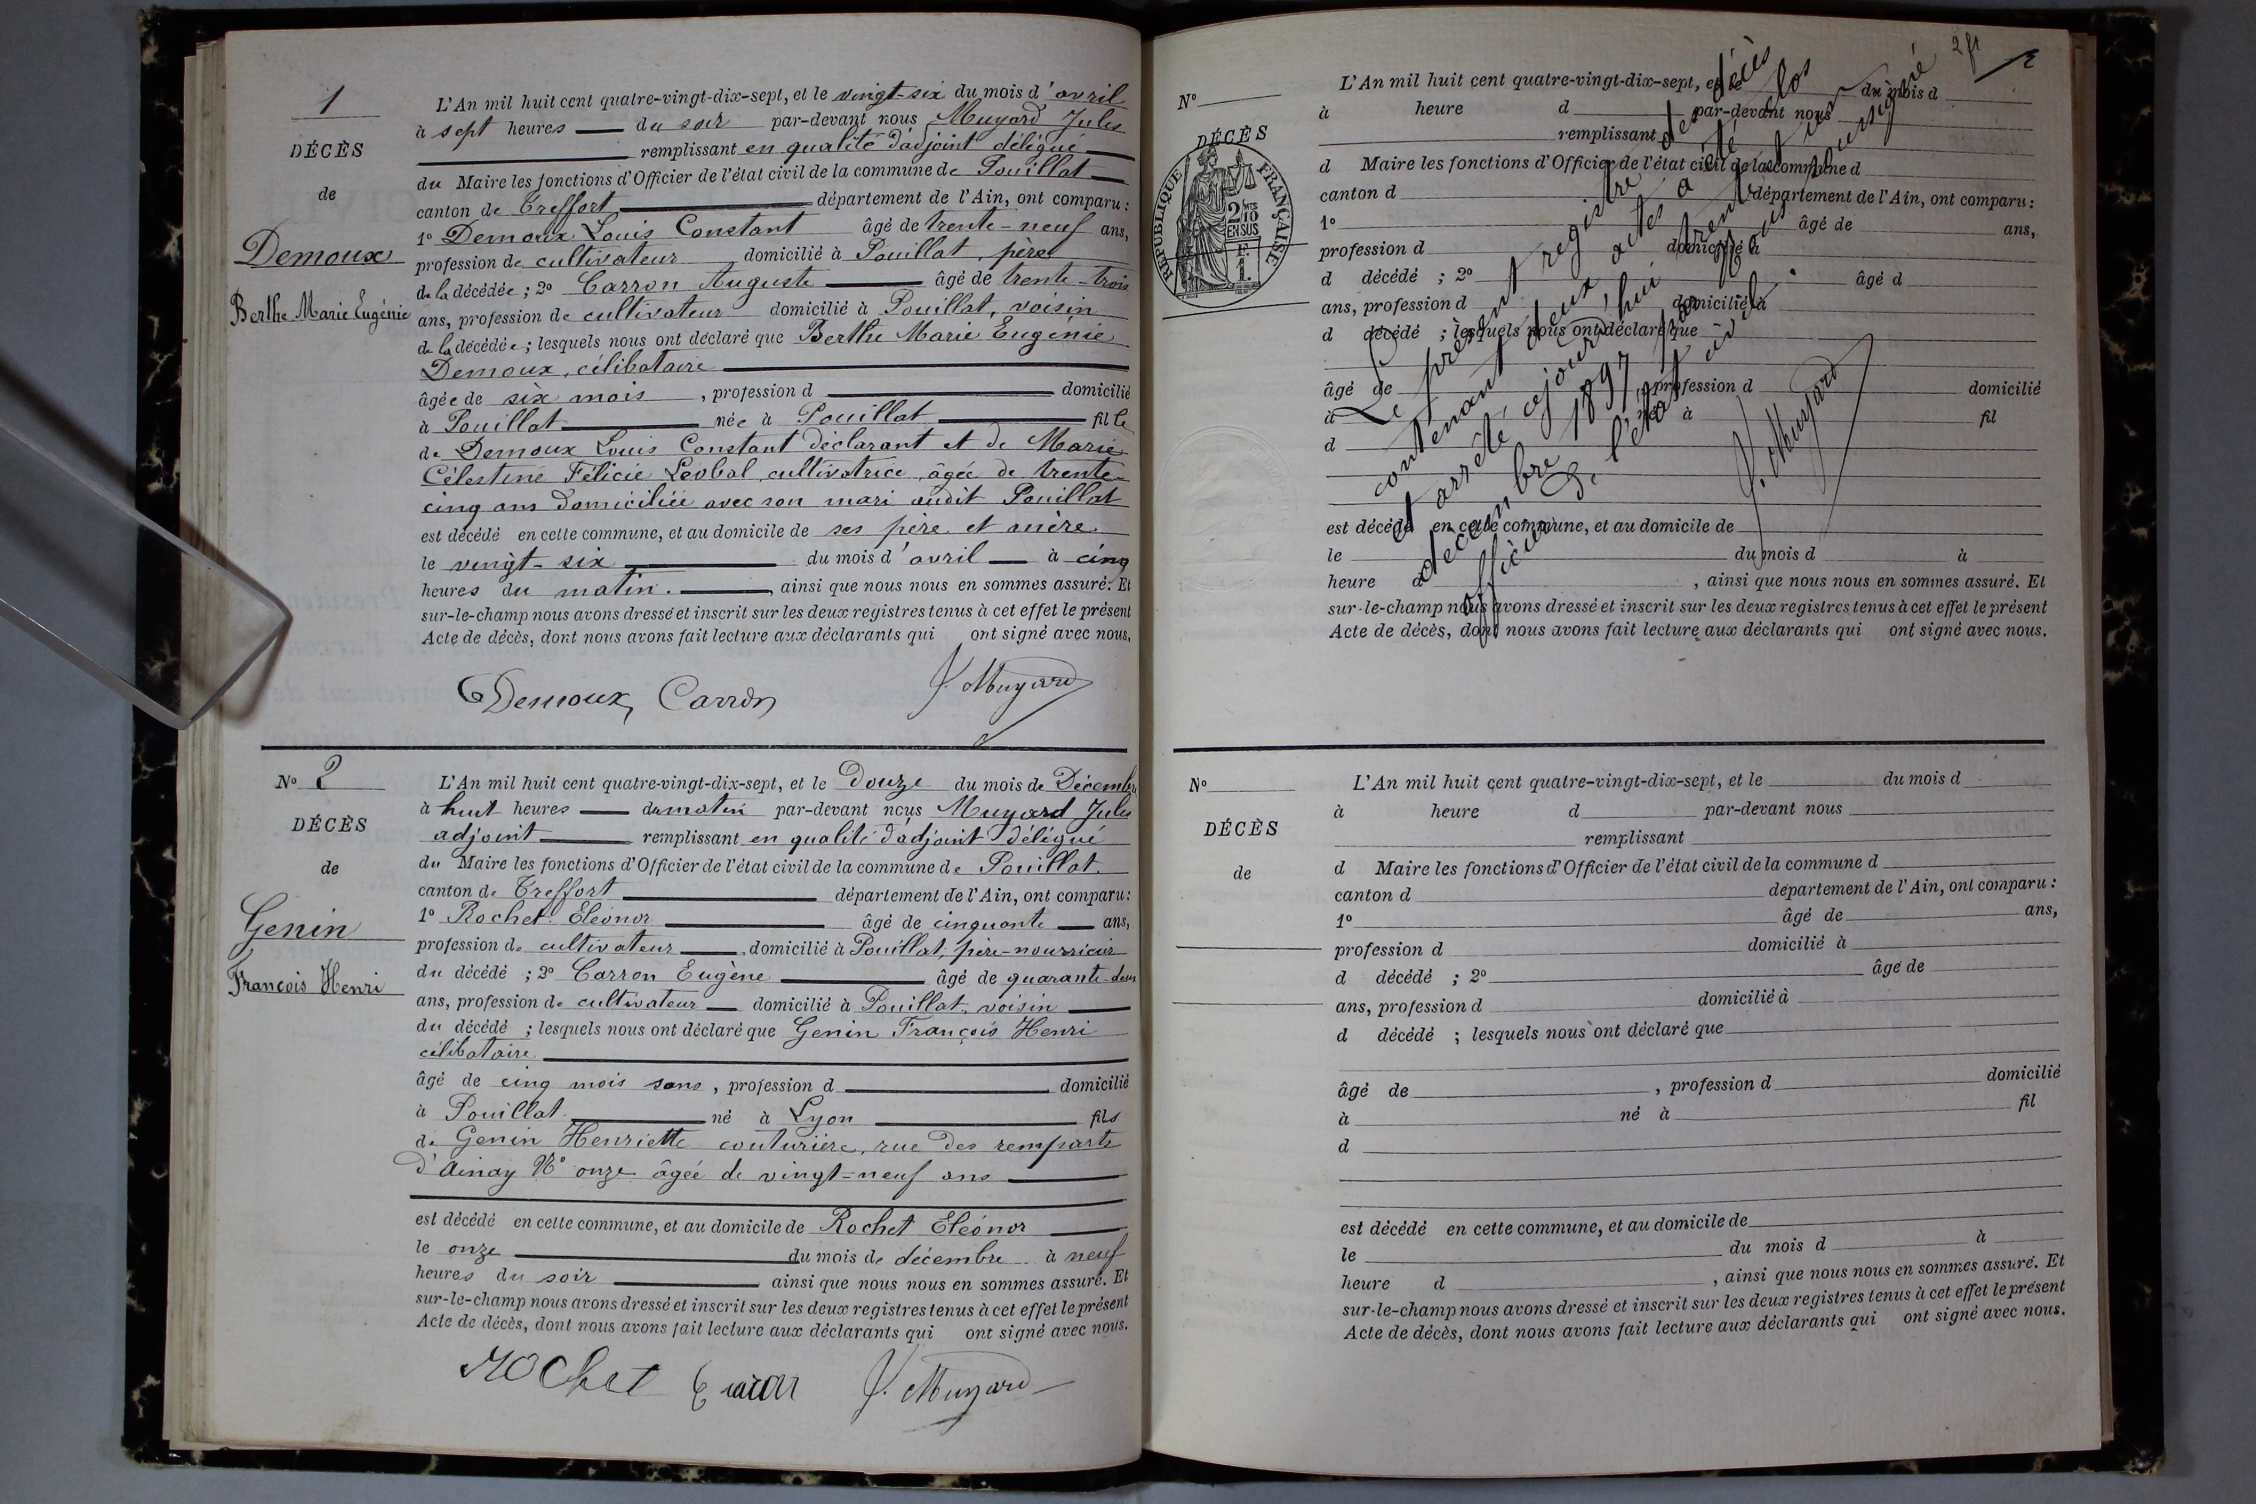 1
DÉCÈS
de
Demoux
Berthe Marie Eugénie
L'An mil huit cent quatre-vingt-dix-sept, et le vingt-six du mois d'avril
à sept heures du soir par-devant nous Mugard Jules
remplissant en qualité d'adjoint délégué
du Maire les fonctions d'Officier de l'état civil de la commune de Pouillat
canton de Treffort département de l'Ain, ont comparu :
1º Demoux Louis Constant âgé de trente-neuf ans,
profession de cultivateur domicilié à Pouillat, père
de la décédée ; 2º Carron Auguste âgé de trente-trois
ans, profession de cultivateur domicilié à Pouillat, voisin
de la décédée ; lesquels nous ont déclaré que Berthe Marie Eugénie
Demoux, célibataire
âgée de six mois, profession d domicilié
à Pouillat née à Pouillat fille
de Demoux Louis Constant déclarant et de Marie
Célestine Félicie Léobal, cultivatrice, âgée de trente-
cinq ans domiciliée avec son mari audit Pouillat
est décédé en cette commune, et au domicile de ses père et mère
le vingt-six du mois d'avril à cinq
heures du matin. ainsi que nous nous en sommes assuré. Et
sur-le-champ nous avons dressé et inscrit sur les deux registres tenus à cet effet le présent
Acte de décès, dont nous avons fait lecture aux déclarants qui ont signé avec nous.
Demoux Carron J. Mugard
Nº 2
DÉCÈS
de
Genin
François Henri
L'An mil huit cent quatre-vingt-dix-sept, et le Douze du mois de Décembre
à huit heures du matin par-devant nous Mugard Jules
adjoint remplissant en qualité d'adjoint délégué
du Maire les fonctions d'Officier de l'état civil de la commune de Pouillat.
canton de Treffort département de l'Ain, ont comparu :
1º Rochet Eléonor âgé de cinquante ans,
profession de cultivateur domicilié à Pouillat, père-nourricier
du décédé ; 2º Carron Eugène âgé de quarante-deux
ans, profession de cultivateur domicilié à Pouillat, voisin
du décédé ; lesquels nous ont déclaré que Genin François Henri
célibataire
âgé de cinq mois sans, profession d domicilié
à Pouillat né à Lyon fils
de Genin Henriette couturière, rue des remparts
d'Ainay Nº onze âgée de vingt-neuf ans
est décédé en cette commune, et au domicile de Rochet Eléonor
le onze du mois de décembre à neuf
heures du soir ainsi que nous nous en sommes assuré. Et
sur-le-champ nous avons dressé et inscrit sur les deux registres tenus à cet effet le présent
Acte de décès, dont nous avons fait lecture aux déclarants qui ont signé avec nous.
Rochet J. Mugard
2
Nº
DÉCÈS
RÉPUBLIQUE FRANÇAISE
2/10
EN SUS
F.
1.
L'An mil huit cent quatre-vingt-dix-sept, et le du mois d
à heure d par-devant nous
remplissant
d Maire les fonctions d'Officier de l'état civil de la commune d
canton d département de l'Ain, ont comparu :
1º âgé de ans,
profession d domicilié à
d décédé ; 2º âgé d
ans, profession d domicilié à
d décédé ; lesquels nous ont déclaré que
âgé de , profession d domicilié
à né à fil
d
est décédé en cette commune, et au domicile de
le du mois d à
heure d , ainsi que nous nous en sommes assuré. Et
sur-le-champ nous avons dressé et inscrit sur les deux registres tenus à cet effet le présent
Acte de décès, dont nous avons fait lecture aux déclarants qui ont signé avec nous.
Le présent registre des décès
contenant deux actes a été clos
et arrêté cejourd'hui trente et un
décembre 1897 par nous soussigné
officier de l'état civil.
J. Mugard
Nº
DÉCÈS
de
L'An mil huit cent quatre-vingt-dix-sept, et le du mois d
à heure d par-devant nous
remplissant
d Maire les fonctions d'Officier de l'état civil de la commune d
canton d département de l'Ain, ont comparu :
1º âgé de ans,
profession d domicilié à
d décédé ; 2º âgé de
ans, profession d domicilié à
d décédé ; lesquels nous ont déclaré que
âgé de , profession d domicilié
à né à fil
d
est décédé en cette commune, et au domicile de
le du mois d à
heure d , ainsi que nous nous en sommes assuré. Et
sur-le-champ nous avons dressé et inscrit sur les deux registres tenus à cet effet le présent
Acte de décès, dont nous avons fait lecture aux déclarants qui ont signé avec nous.